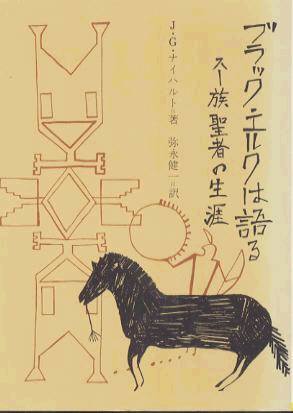 ブラック・エルクは語る
スー族聖者の生涯
J・G・ナイハルト=著　弥永健一=訳